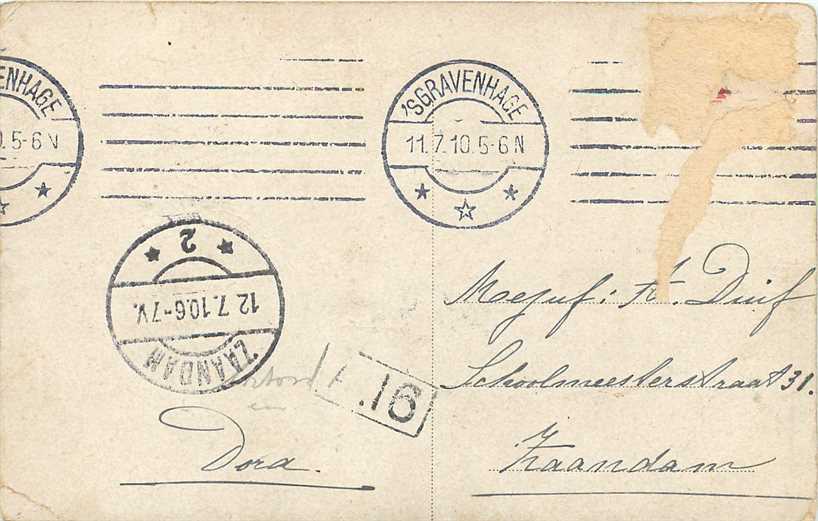 ENHAGE
0.5-6 N
'SGRAVENHAGE
11.7.10.5-6 N
2
12.7.10.6-7V.
ZAANDAM
.16
Dora.
Mejuf. A. Duif
Schoolmeesterstraat 31.
Zaandam